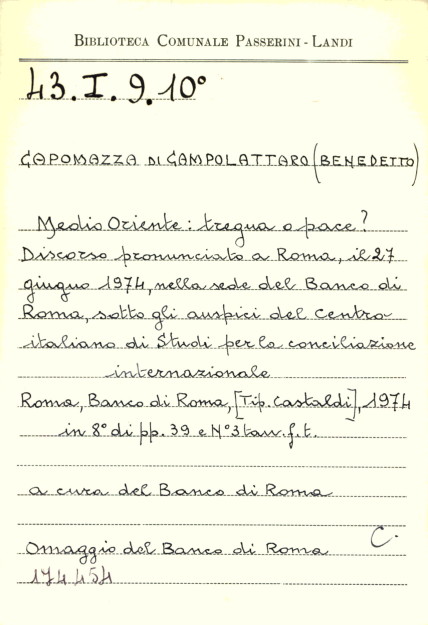 BIBLIOTECA COMUNALE PASSERINI - LANDI
43.I.9.10°
CAPOMAZZA DI CAMPOLATTARO (BENEDETTO)
Medio Oriente: tregua o pace?
Discorso pronunciato a Roma, il 27
giugno 1974, nella sede del Banco di
Roma, sotto gli auspici del Centro
italiano di Studi per la conciliazione
internazionale
Roma, Banco di Roma, [Tip. Castaldi], 1974
in 8° di pp. 39 e N° 3 tav. f. t.
a cura del Banco di Roma
C.
Omaggio del Banco di Roma
174454